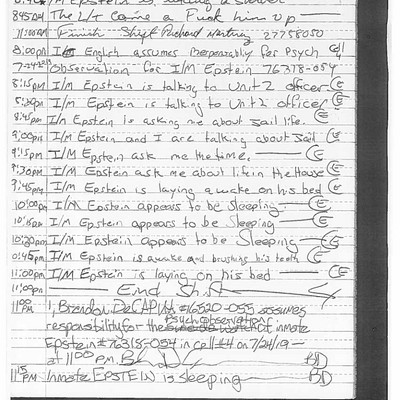 I/M Epstein is taking a shower
8:45AM The L/T came a Fuck him up
11:00AM Finish Shift Richard 27758050
8:00PM I/C English assumes Responsability for Psych CE
7-24-2019 Observation for I/M Epstein 76318-054
8:15PM I/M Epstein is talking to Unit 2 officer CE
I/M Epstein is talking to Unit 2 officer CE
8:45PM I/n Epstein is asking me about jail life. CE
9:00PM I/M Epstein and I are talking about jail CE
9:15PM I/M Epstein ask me the time. CE
9:30PM I/M Epstein ask me about life in the House CE
9:45PM I/M Epstein is laying awake on his bed CE
10:00PM I/M Epstein appears to be sleeping. CE
I/M Epstein appears to be Sleeping CE
10:30PM I/M Epstein appears to be Sleeping CE
10:45PM I/M Epstein is awake and brushing his teeth CE
11:00PM I/M Epstein is laying on his bed CE
11:00PM End Shift
11:00PM I, Brandon #16520-055 assumes
responsibility for the Psych observation of inmate
Epstein #76318-054 in cell #4 on 7/24/19
at 11:00 P.M. BD
11:15PM Inmate EPSTEIN is sleeping BD